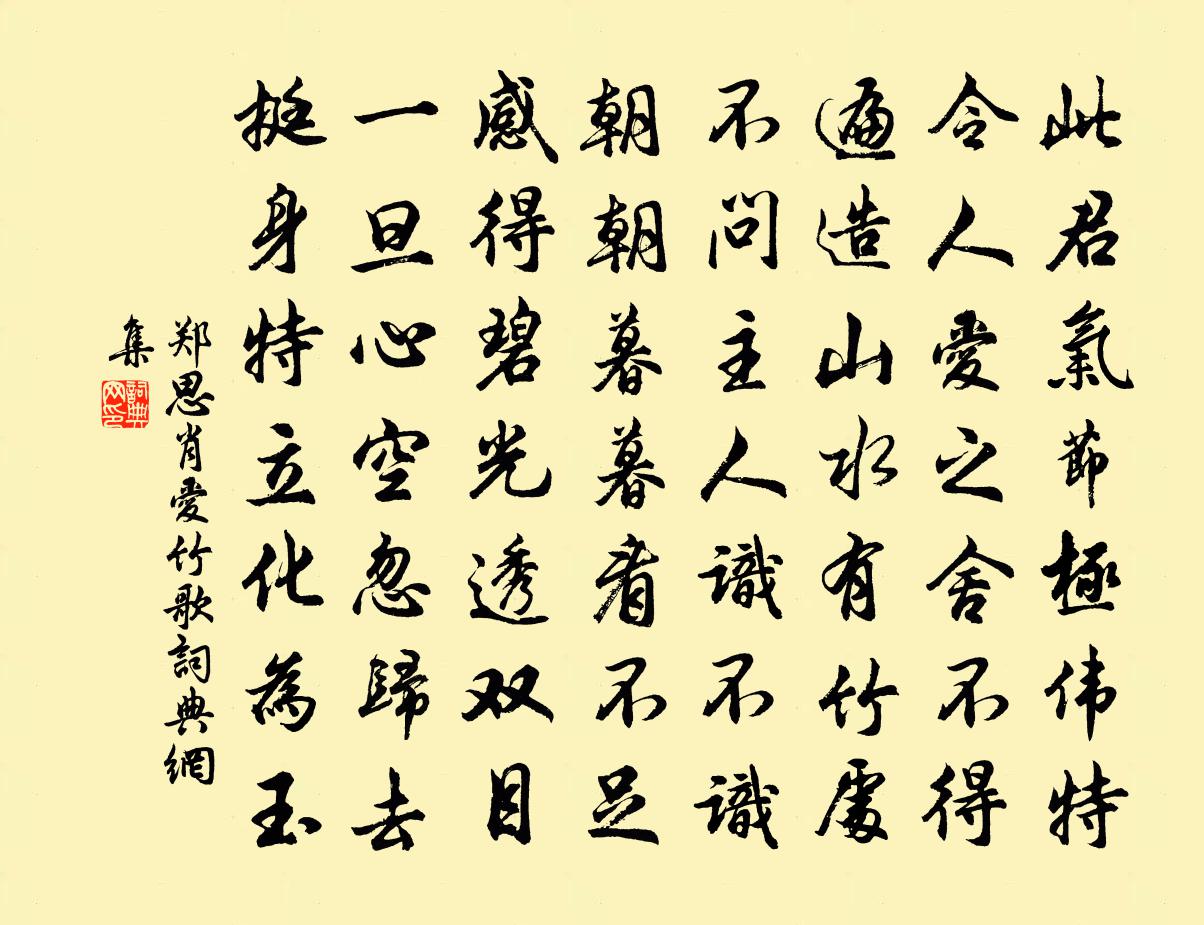 此君氣節極伟特
令人愛之舍不得
遍造山水有竹處
不問主人識不識
朝朝暮暮看不足
感得碧光透双目
一旦心空忽歸去
挺身特立化為玉
郑思肖愛竹歌詞典網
集
詞典
网印